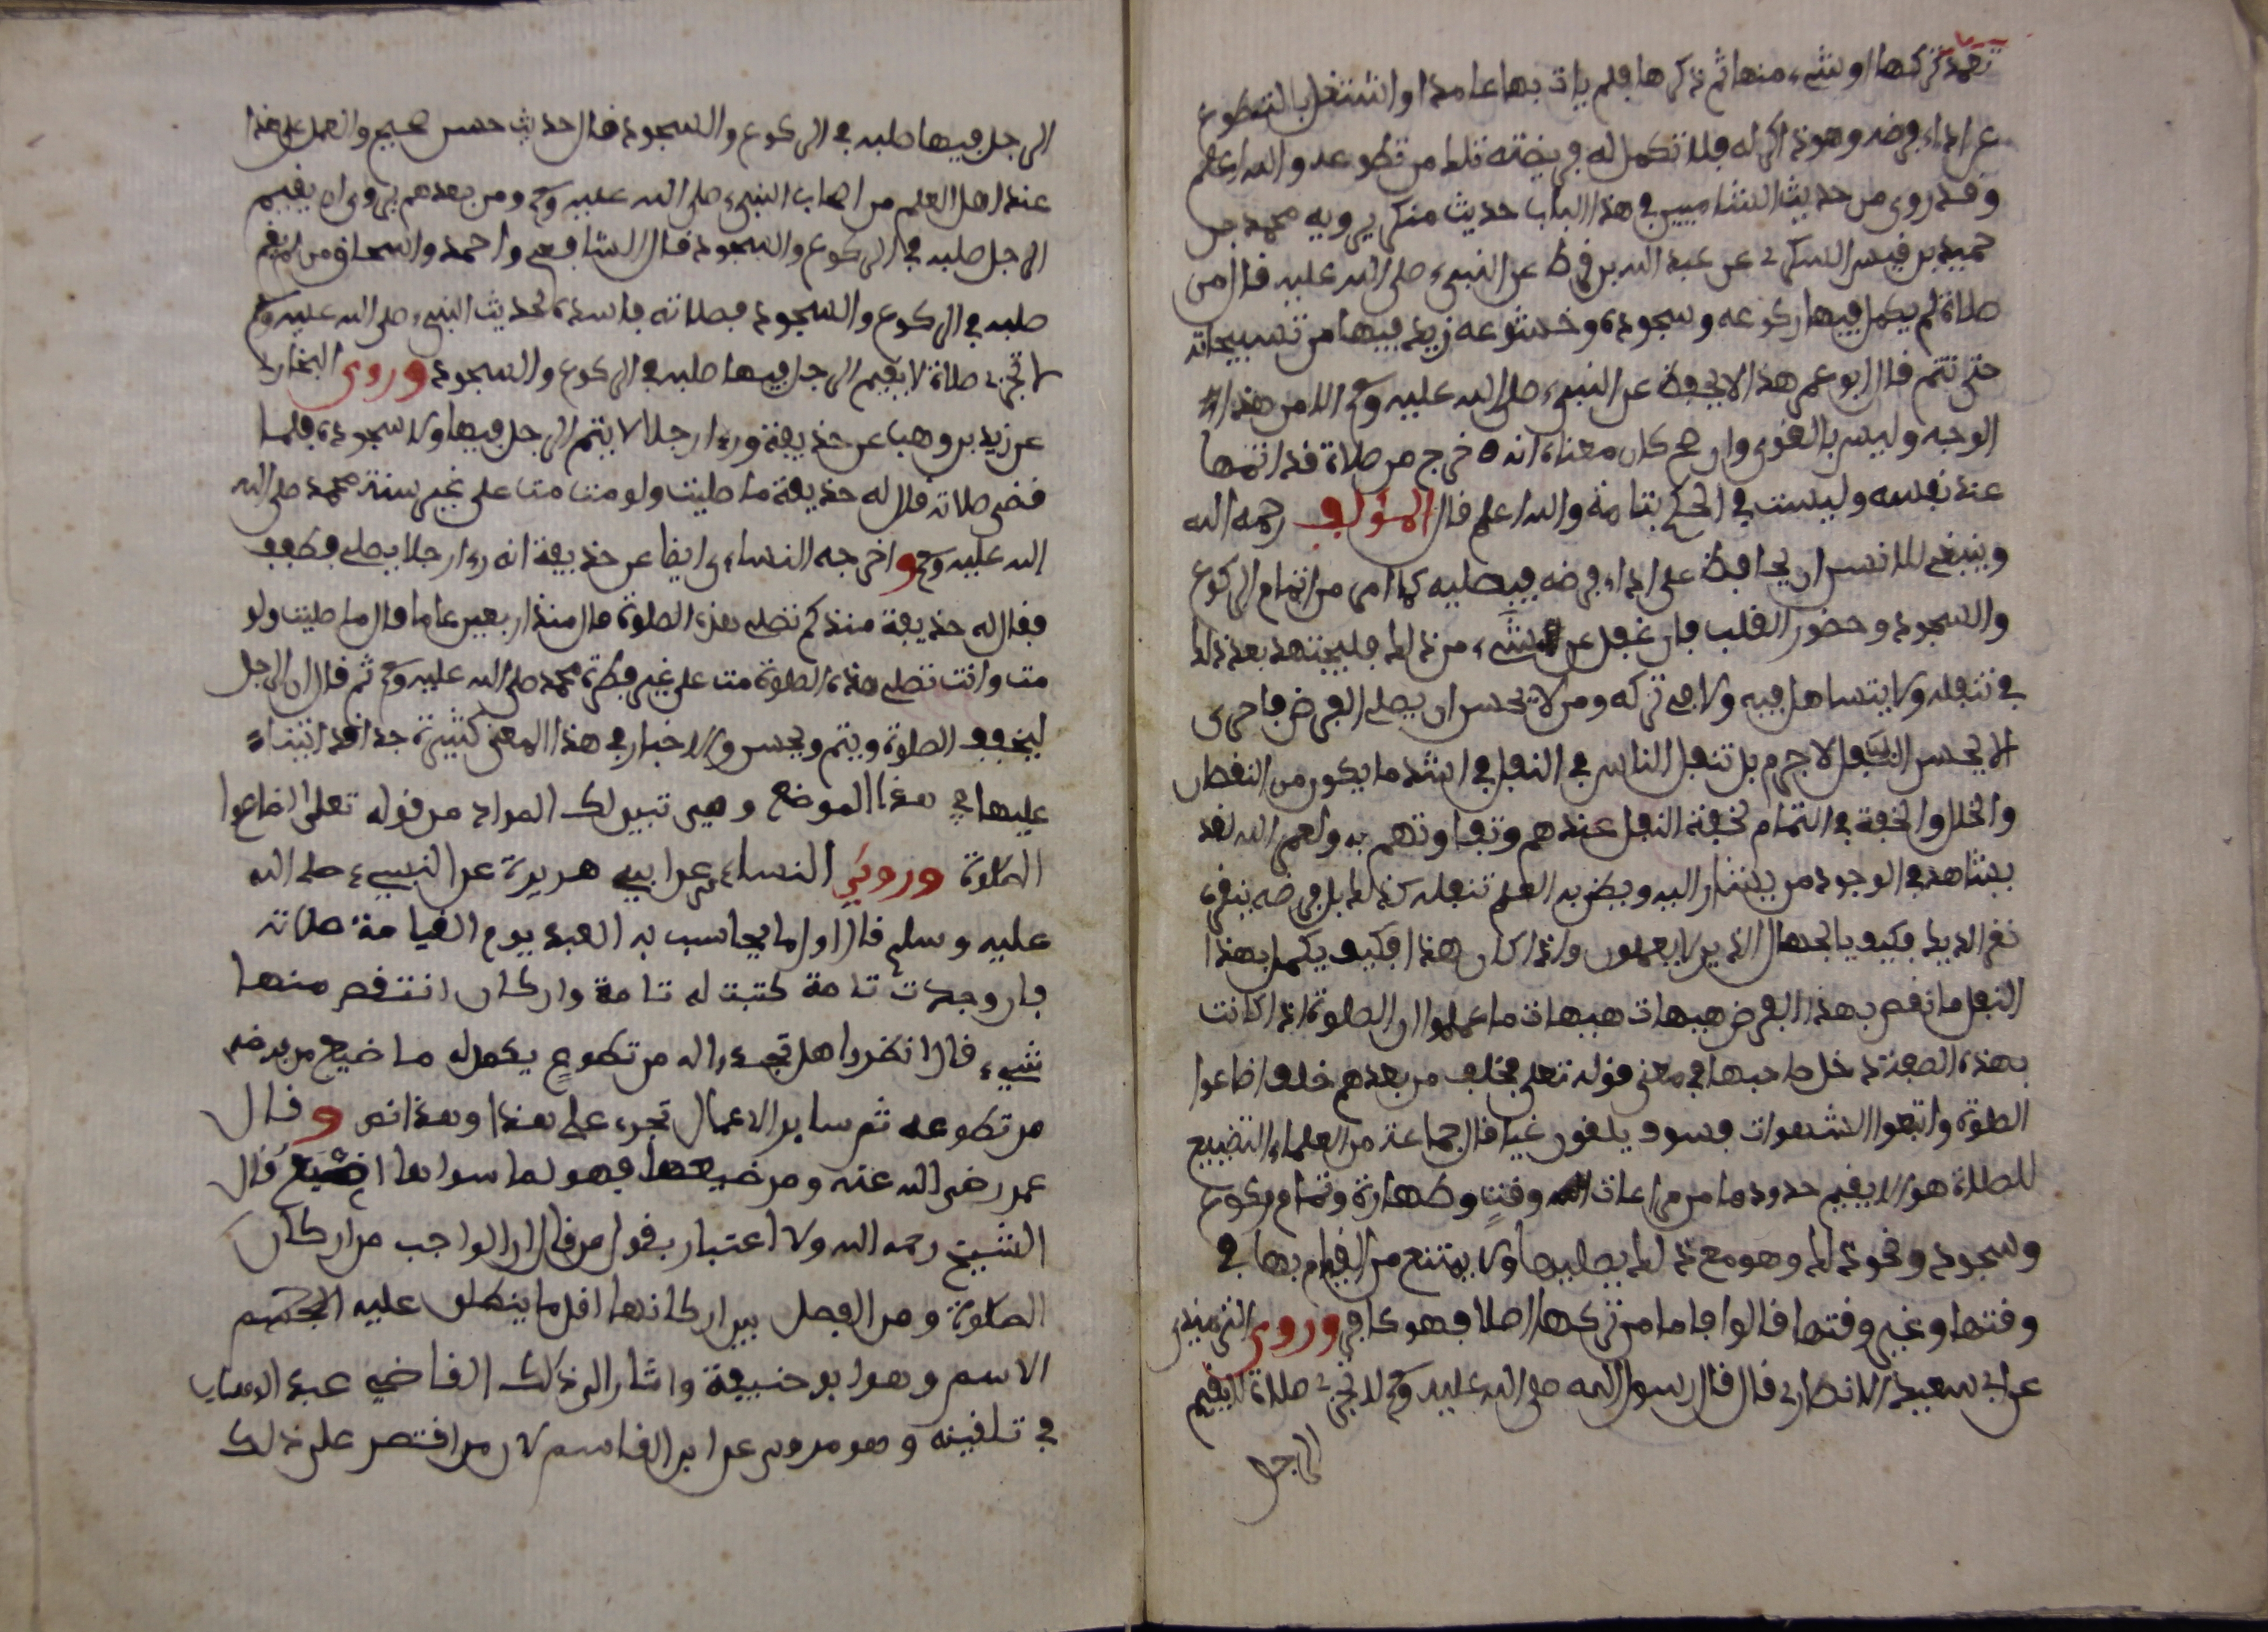 تعمد تركها او نسي منها ثم ذكرها فلم يات بها عامدا واشتغل بالتطوع
عن اداء فرضه وهو ذاكر له فلا تكمل له فريضته تلك من تطوعه والله اعلم
وقد روى من حديث الشاميين في هذا الباب حديث منكر يرويه محمد بن
حميد بن قيس السكوني عن عبد الله بن قرط عن النبي صلى الله عليه قال من
صلاة لم يكمل فيها ركوعه وسجوده وخشوعه زيد فيها من تسبيحاته
حتى تتم قال ابو عمر هذا لا يحفظ عن النبي صلى الله عليه وسلم الا من هذا
الوجه وليس بالقوى وان صح كان معناه انه خرج من صلاة قد اتمها
عند نفسه وليست في الحكم بتامة والله اعلم قال المؤلف رحمه الله
وينبغي للانسان ان يحافظ على اداء فرضه فيصليه كما امر من اتمام الركوع
والسجود وحضور القلب فان غفل عن شيء من ذلك فليجتهد بعد ذلك
في تنفله ولا يتساهل فيه ولا في تركه ومن لا يحسن ان يصلي الفرض فاحرى
الا يحسن النفل لا جرم بل تنفل الناس في النفل في اشد ما يكون من النقصان
والخلل والخفة في التمام لخفة النفل عندهم وتهاونهم به ولعمر الله لقد
يشاهد في الوجود من يشار اليه ويظن به العلم تنفله كذلك بل فرضه ينقره
نقر الديك فكيف بالجهال الذين لا يعلمون واذا كان هذا فكيف يكمل بهذا
النفل ما نقص بهذا الفرض هيهات هيهات ما عملوا ان الصلوة اذا كانت
بهذه الصفة دخل صاحبها في معنى قوله تعلى فخلف من بعدهم خلف اضاعوا
الصلوة واتبعوا الشهوات فسوف يلقون غيا قال جماعة من العلماء التضييع
للصلاة هو الا يقيم حدودها من مراعات وقت وطهارة وتمام ركوع
وسجود ونحو ذلك وهو مع ذلك يصليها ولا يمتنع من القيام بها في
وقتها وغير وقتها قالوا فاما من تركها اصلا فهو كافر وروى الترمذي
عن ابي سعيد الانصاري قال قال رسول الله صلى الله عليه وسلم لا تجزي صلاة لا يقيم
الرجل
الرجل فيها صلبه في الركوع والسجود قال حديث حسن صحيح والعمل على هذا
عند اهل العلم من اصحاب النبي صلى الله عليه وسلم ومن بعدهم يرون ان يقيم
الرجل صلبه في الركوع والسجود قال الشافعي واحمد واسحاق من لم يقم
صلبه في الركوع والسجود فصلاته فاسدة لحديث النبي صلى الله عليه وسلم
لا تجزي صلاة لا يقيم الرجل فيها صلبه في الركوع والسجود وروى البخاري
عن زيد بن وهب عن حذيفة وراى رجلا لا يتم الرجل فيها ولا سجوده فلما
قضى صلاته قال له حذيفة ما صليت ولو مت مت على غير سنة محمد صلى الله
الله عليه وسلم واخرجه النساءي ايضا عن حذيفة انه راى رجلا يصلي فطفف
فقال له حذيفة منذ كم تصلي هذه الصلوة قال منذ اربعين عاما قال ما صليت ولو
مت وانت تصلي هذه الصلوة مت على غير فطرة محمد صلى الله عليه وسلم ثم قال ان الرجل
ليخفف الصلوة ويتم ويحسن والاخبار في هذا المعنى كثيرة جدا قد اتينا
عليها في هذا الموضع وهي تبين لك المراد من قوله تعلى اضاعوا
الصلوة وروى النساءي عن ابي هريرة عن النبيء صلى الله
عليه وسلم قال اول ما يحاسب به العبد يوم القيامة صلاته
فان وجدت تامة كتبت له تامة وان كان انتقص منها
شيء قال انظروا هل تجدوا له من تطوع يكمل له ما ضيع من فرضه
من تطوعه ثم ساير الاعمال تجرى على هذا وهذا نص وقال
عمر رضي الله عنه ومن ضيعها فهو لما سواها اضيع قال
الشيخ رحمه الله ولا اعتبار بقول من قال ان الواجب من اركان
الصلوة ومن الفصل بين اركانها اقل ما ينطلق عليه
الاسم وهو ابو حنيفة واشار الى ذلك القاضي عبد الوهاب
في تلقينه وهو مروى عن ابن القاسم لان من اقتصر على ذلك